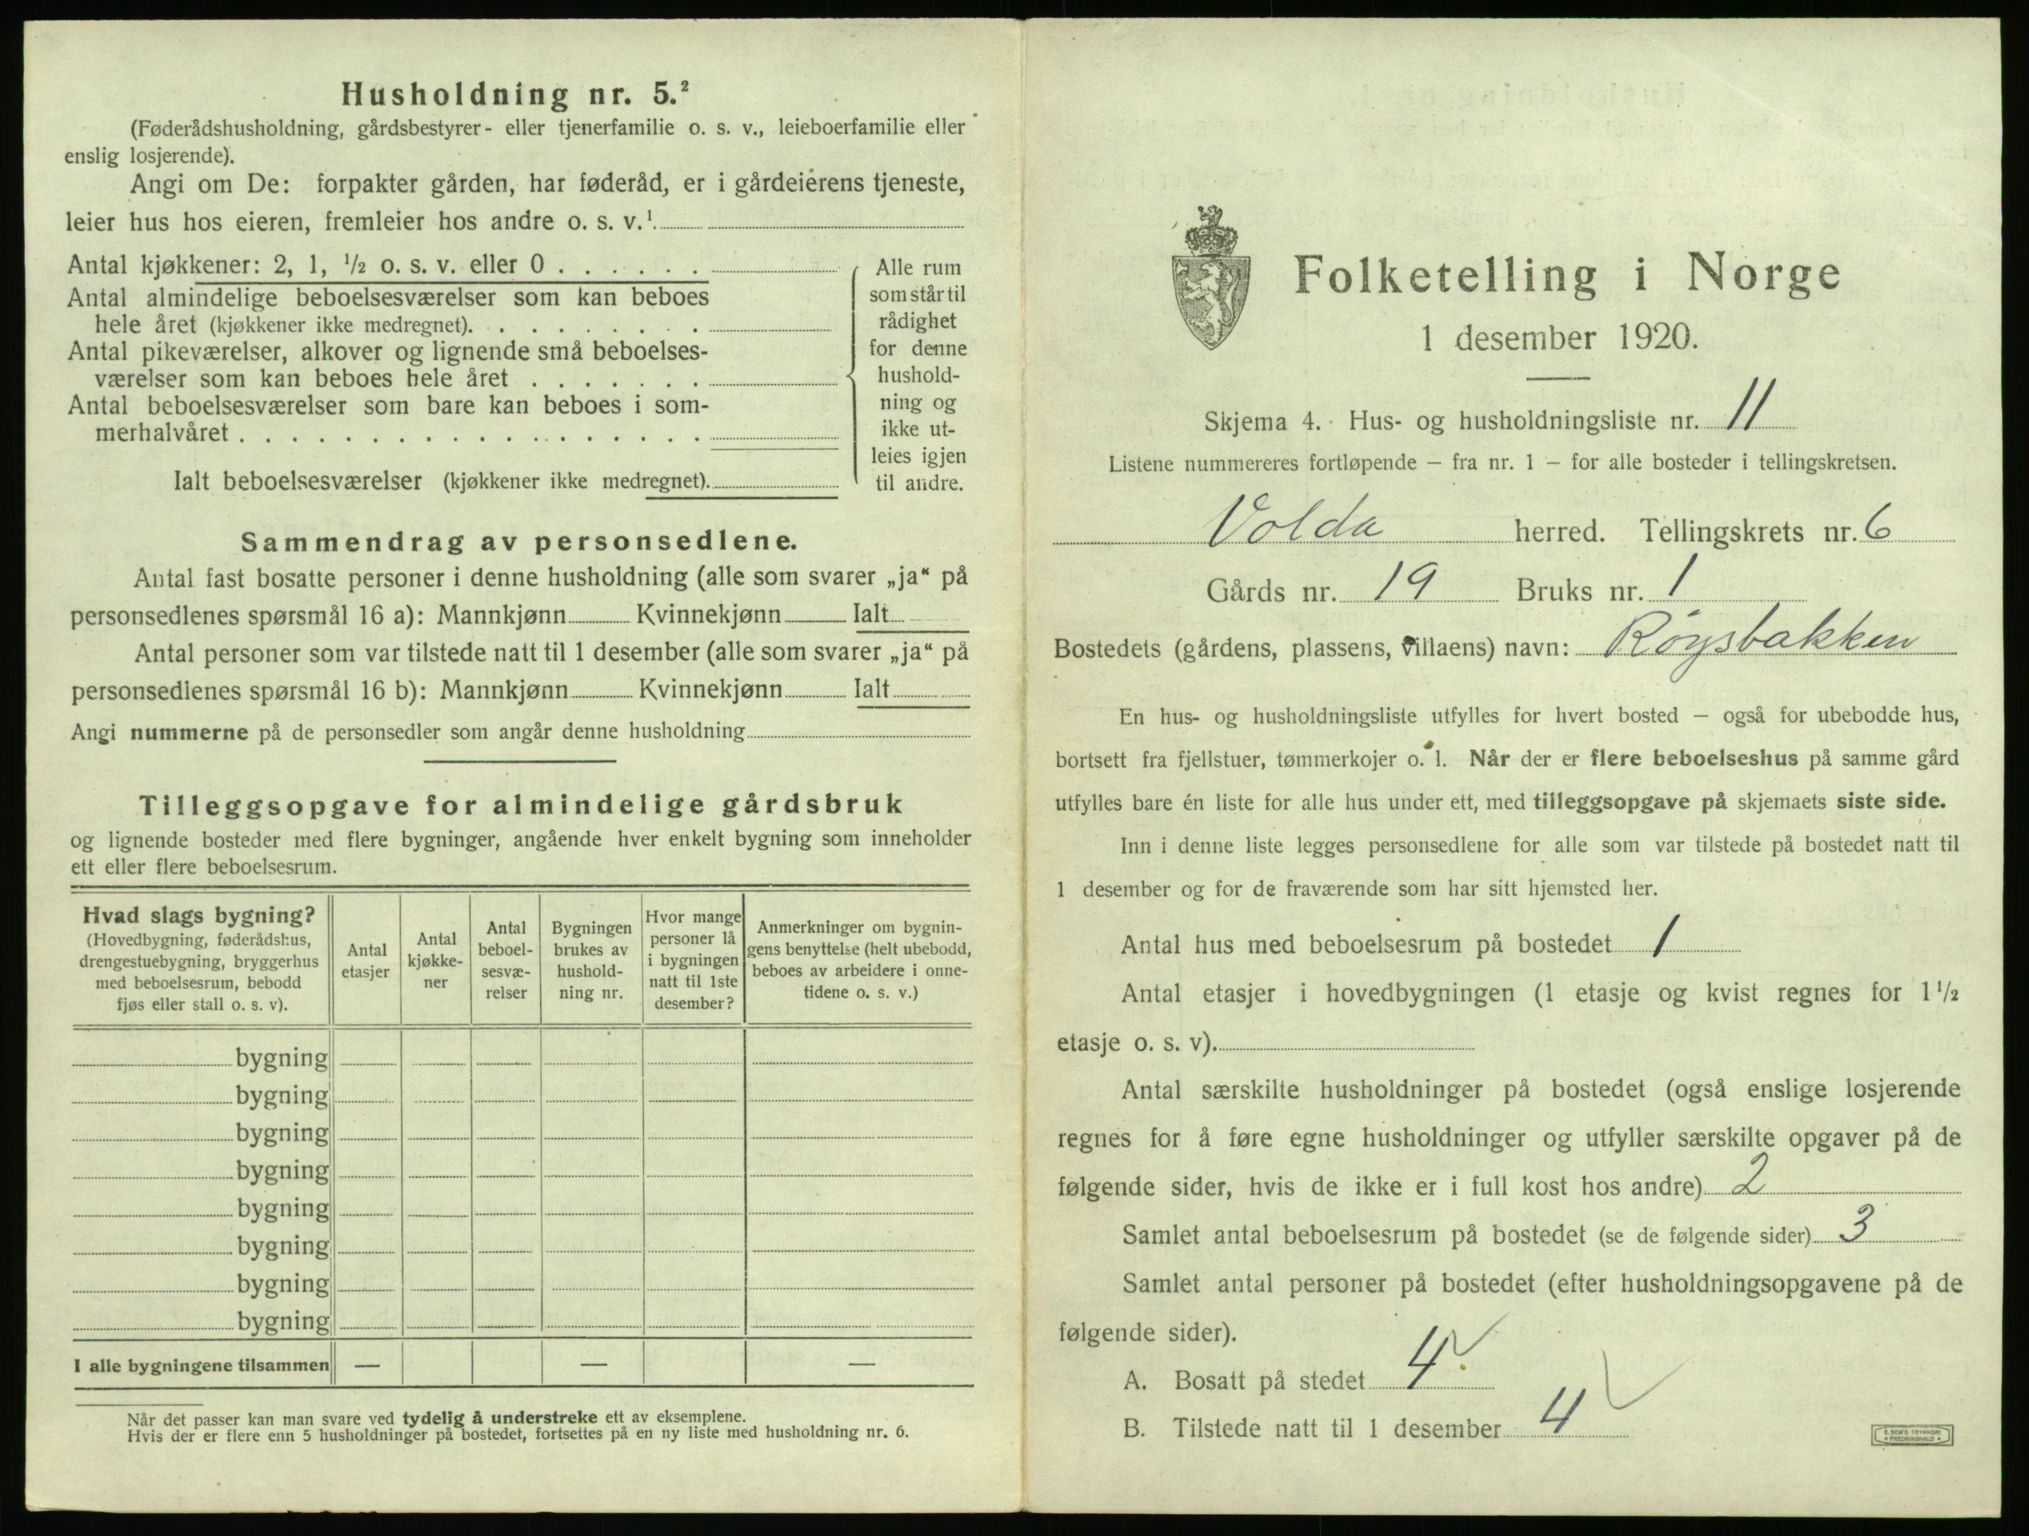 Husholdning nr. 5.²
(Føderådshusholdning, gårdsbestyrer- eller tjenerfamilie o. s. v., leieboerfamilie eller
enslig losjerende).
Angi om De: forpakter gården, har føderåd, er i gårdeierens tjeneste,
leier hus hos eieren, fremleier hos andre o. s. v.¹
Antal kjøkkener: 2, 1, ½ o. s. v. eller 0 . . . . . .
Antal almindelige beboelsesværelser som kan beboes
hele året (kjøkkener ikke medregnet). . . . . . . . .
Antal pikeværelser, alkover og lignende små beboelses-
værelser som kan beboes hele året . . . . . . .
Antal beboelsesværelser som bare kan beboes i som-
merhalvåret . . . . . . . . . . . . . . . . . .
Ialt beboelsesværelser (kjøkkener ikke medregnet).
Alle rum
som står til
rådighet
for denne
hushold-
ning og
ikke ut-
leies igjen
til andre.
Sammendrag av personsedlene.
Antal fast bosatte personer i denne husholdning (alle som svarer „ja“ på
personsedlenes spørsmål 16 a): Mannkjønn Kvinnekjønn Ialt
Antal personer som var tilstede natt til 1 desember (alle som svarer „ja“ på
personsedlenes spørsmål 16 b): Mannkjønn Kvinnekjønn Ialt
Angi nummerne på de personsedler som angår denne husholdning
Tilleggsopgave for almindelige gårdsbruk
og lignende bosteder med flere bygninger, angående hver enkelt bygning som inneholder
ett eller flere beboelsesrum.
Hvad slags bygning?
(Hovedbygning, føderådshus,
drengestuebygning, bryggerhus
med beboelsesrum, bebodd
fjøs eller stall o. s. v).
Antal
etasjer
Antal
kjøkke-
ner
Antal
beboel-
sesvæ-
relser
Bygningen
brukes av
hushold-
ning nr.
Hvor mange
personer lå
i bygningen
natt til 1ste
desember?
Anmerkninger om bygnin-
gens benyttelse (helt ubebodd,
beboes av arbeidere i onne-
tidene o. s. v.)
bygning
bygning
bygning
bygning
bygning
bygning
bygning
bygning
I alle bygningene tilsammen — — —
Når det passer kan man svare ved tydelig å understreke ett av eksemplene.
Hvis der er flere enn 5 husholdninger på bostedet, fortsettes på en ny liste med husholdning nr. 6.
Folketelling i Norge
1 desember 1920.
Skjema 4. Hus- og husholdningsliste nr. 11
Listene nummereres fortløpende – fra nr. 1 – for alle bosteder i tellingskretsen.
Volda herred. Tellingskrets nr. 6
Gårds nr. 19 Bruks nr. 1
Bostedets (gårdens, plassens, villaens) navn: Röysbakken
En hus- og husholdningsliste utfylles for hvert bosted – også for ubebodde hus,
bortsett fra fjellstuer, tømmerkojer o. l. Når der er flere beboelseshus på samme gård
utfylles bare én liste for alle hus under ett, med tilleggsopgave på skjemaets siste side.
Inn i denne liste legges personsedlene for alle som var tilstede på bostedet natt til
1 desember og for de fraværende som har sitt hjemsted her.
Antal hus med beboelsesrum på bostedet 1
Antal etasjer i hovedbygningen (1 etasje og kvist regnes for 1½
etasje o. s. v).
Antal særskilte husholdninger på bostedet (også enslige losjerende
regnes for å føre egne husholdninger og utfyller særskilte opgaver på de
følgende sider, hvis de ikke er i full kost hos andre) 2
Samlet antal beboelsesrum på bostedet (se de følgende sider) 3
Samlet antal personer på bostedet (efter husholdningsopgavene på de
følgende sider).
A. Bosatt på stedet 4
B. Tilstede natt til 1 desember 4
E. SEM'S TRYKKERI
FREDRIKSHALD